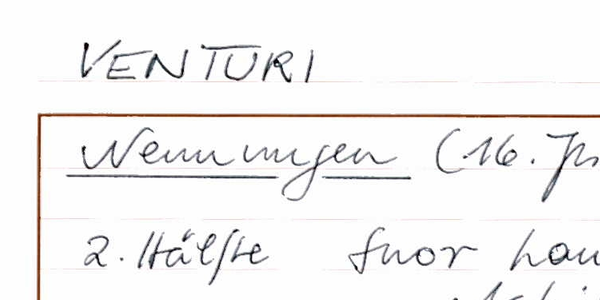 VENTURI
Nennungen (16. J
2. Hälfte fuor hau